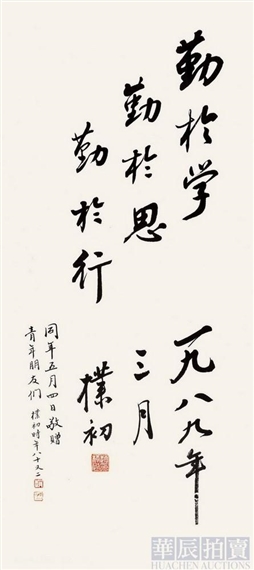 勤於学
勤於思
勤於行
一九八九年
三月
樸初
同年五月四日敬赠
青年朋友们
樸初時年八十又二
華辰拍賣
HUACHEN AUCTIONS